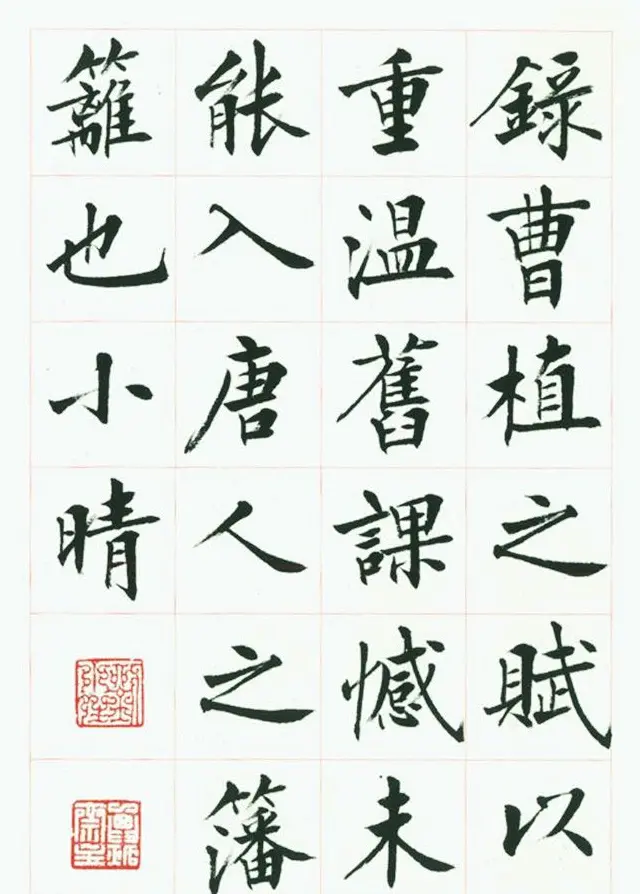 錄曹植之賦以
重温舊課憾未
能入唐人之籓
籬也小晴